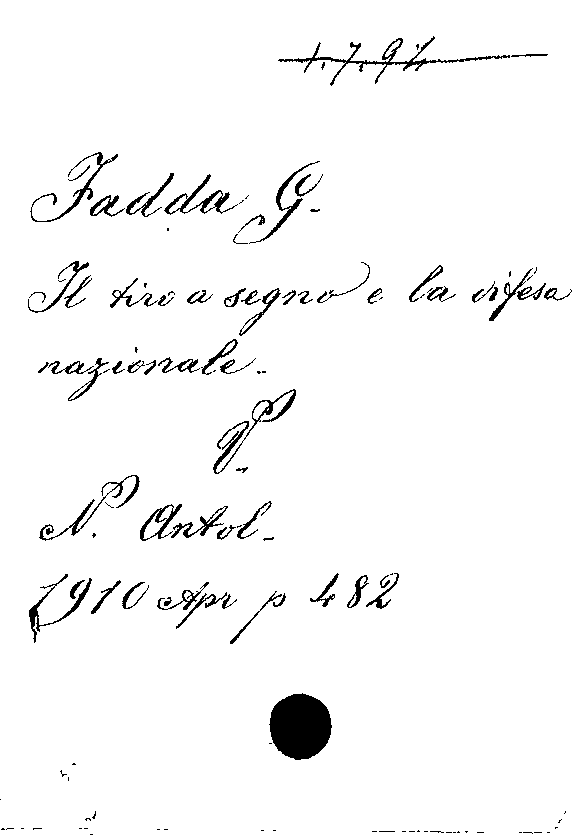 1.7.94
Fadda G.
Il tiro a segno e la difesa
nazionale.
V.
N. Antol.
1910 Apr p 482